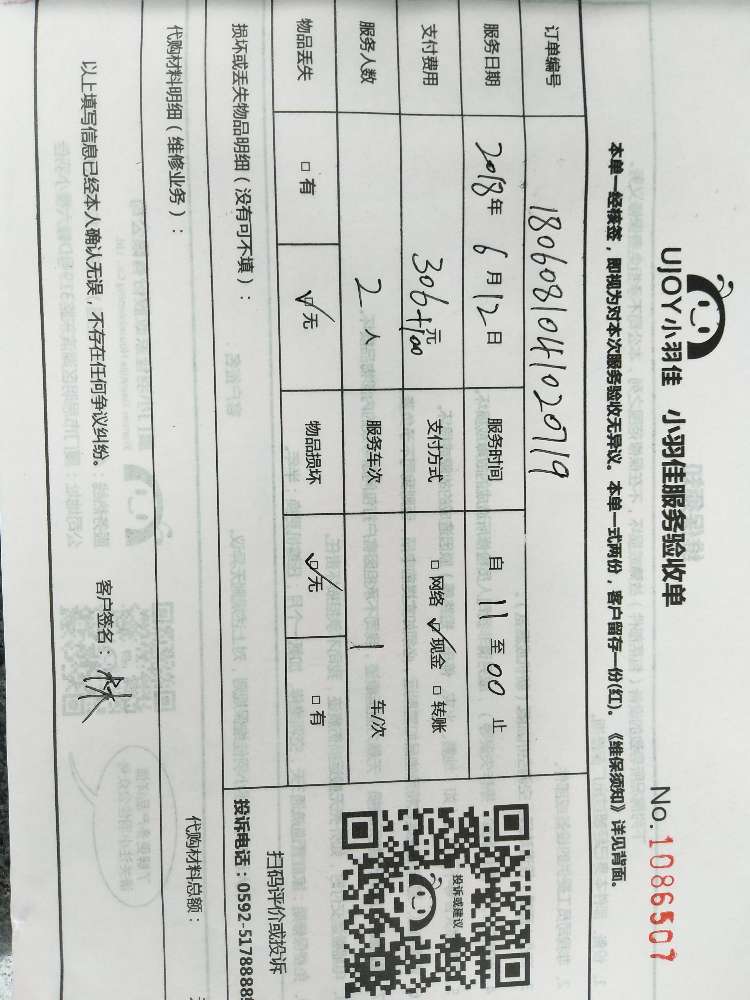 UJOY小羽佳 小羽佳服务验收单
No. 1086507
本单一经接签，即视为对本次服务验收无异议。本单一式两份，客户留存一份(红)。《维保须知》详见背面。
订单编号 1806081041020719
服务日期 2018年 6月12日 服务时间 自 11 至 00 止
支付费用 306+100元 支付方式 □网络 ☑现金 □转账
服务人数 2 人 服务车次 1 车/次
物品丢失 □有 ☑无 物品损坏 ☑无 □有
投诉或建议
扫码评价或投诉
投诉电话：0592-5178888
损坏或丢失物品明细（没有可不填）：
代购材料明细（维修业务）： 代购材料总额：
以上填写信息已经本人确认无误，不存在任何争议纠纷。 客户签名：